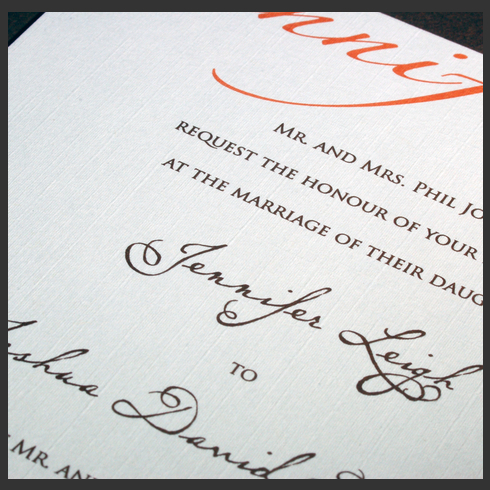 MR. AND MRS. PHIL JO
REQUEST THE HONOUR OF YOUR
AT THE MARRIAGE OF THEIR DAUG
Jennifer Leigh
TO
oshua David
MR. AN